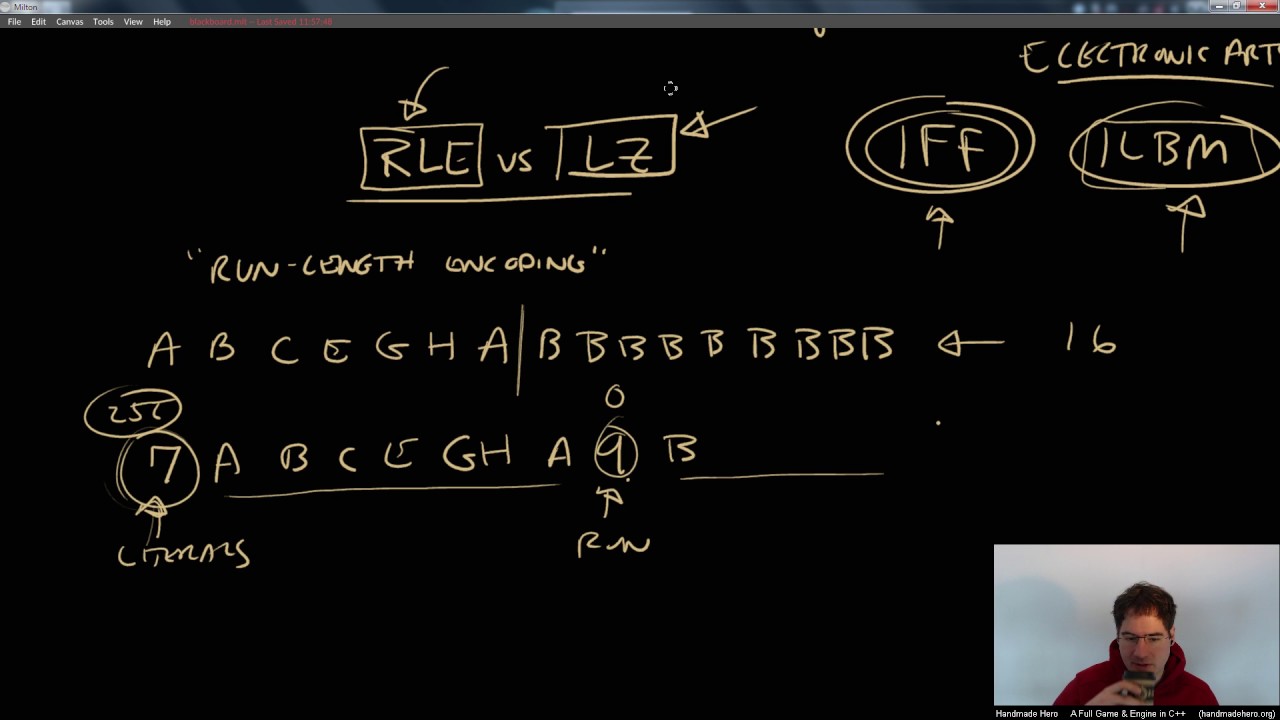 Milton
File Edit Canvas Tools View Help blackboard.mlt -- Last Saved 11:57:48
ELECTRONIC ART
RLE vs LZ
IFF
ILBM
"RUN-LENGTH ENCODING"
A B C E G H A | B B B B B B B B B ← 16
255
0
7 A B C E G H A 9 B
LITERALS
RUN
Handmade Hero A Full Game & Engine in C++ (handmadehero.org)